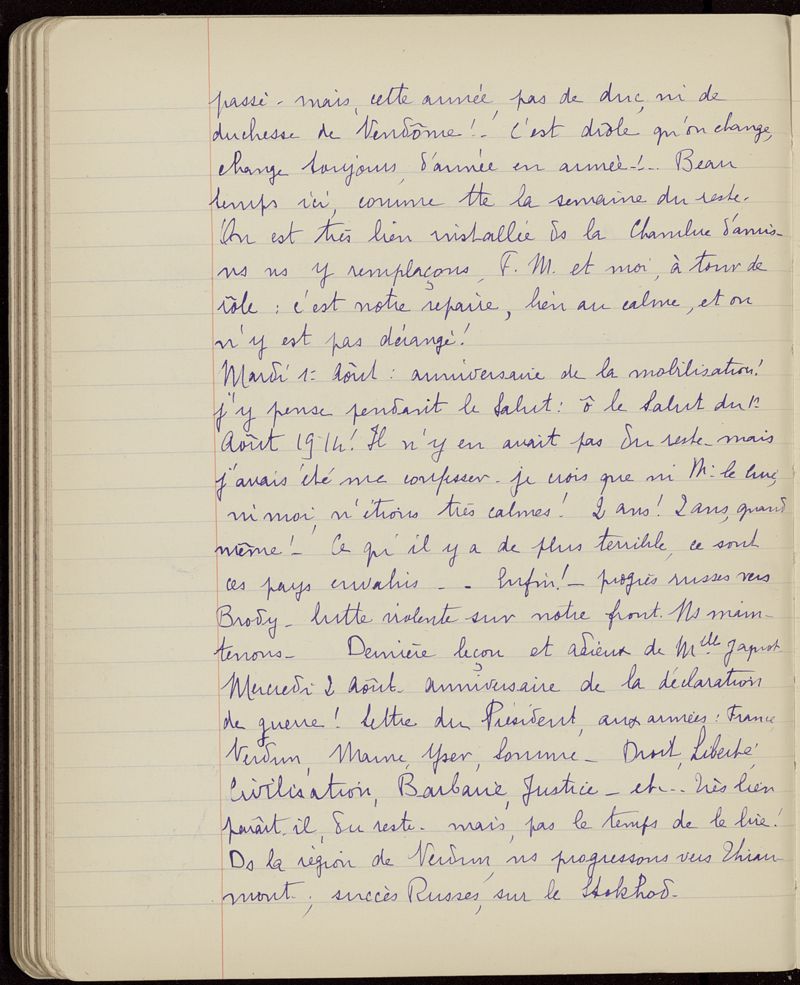 passé - mais, cette année, pas de duc, ni de
duchesse de Vendôme ! - C'est drôle qu'on change,
change toujours, d'année en année - ! - Beau
temps ici, comme tte la semaine du reste -
On est très bien installée ds la Chambre d'amis -
ns ns y remplaçons, F. M. et moi, à tour de
rôle : c'est notre repaire, bien au calme, et on
n'y est pas dérangé !
Mardi 1er Août : anniversaire de la mobilisation !
j'y pense pendant le Salut : ô le Salut du 1er
Août 1914 ! Il n'y en avait pas du reste - mais
j'avais été me confesser - je crois que ni Mr le Curé,
ni moi, n'étions très calmes ! 2 ans ! 2 ans, quand
même ! - Ce qu'il y a de plus terrible, ce sont
ces pays envahis - - Enfin ! - progrès russes vers
Brody - lutte violente sur notre front. Ns main-
tenons - Dernière leçon et adieux de Melle
Mercredi 2 Août - anniversaire de la déclaration
de guerre ! Lettre du Président, aux armées : France,
Verdun, Marne, Yser, Somme - Droit, Liberté,
Civilisation, Barbarie, Justice - etc - - Très bien
paraît-il, du reste - mais, pas le temps de le lire !
Ds la région de Verdun, ns progressons vers Thiau-
mont ; succès Russes, sur le Stokhod -